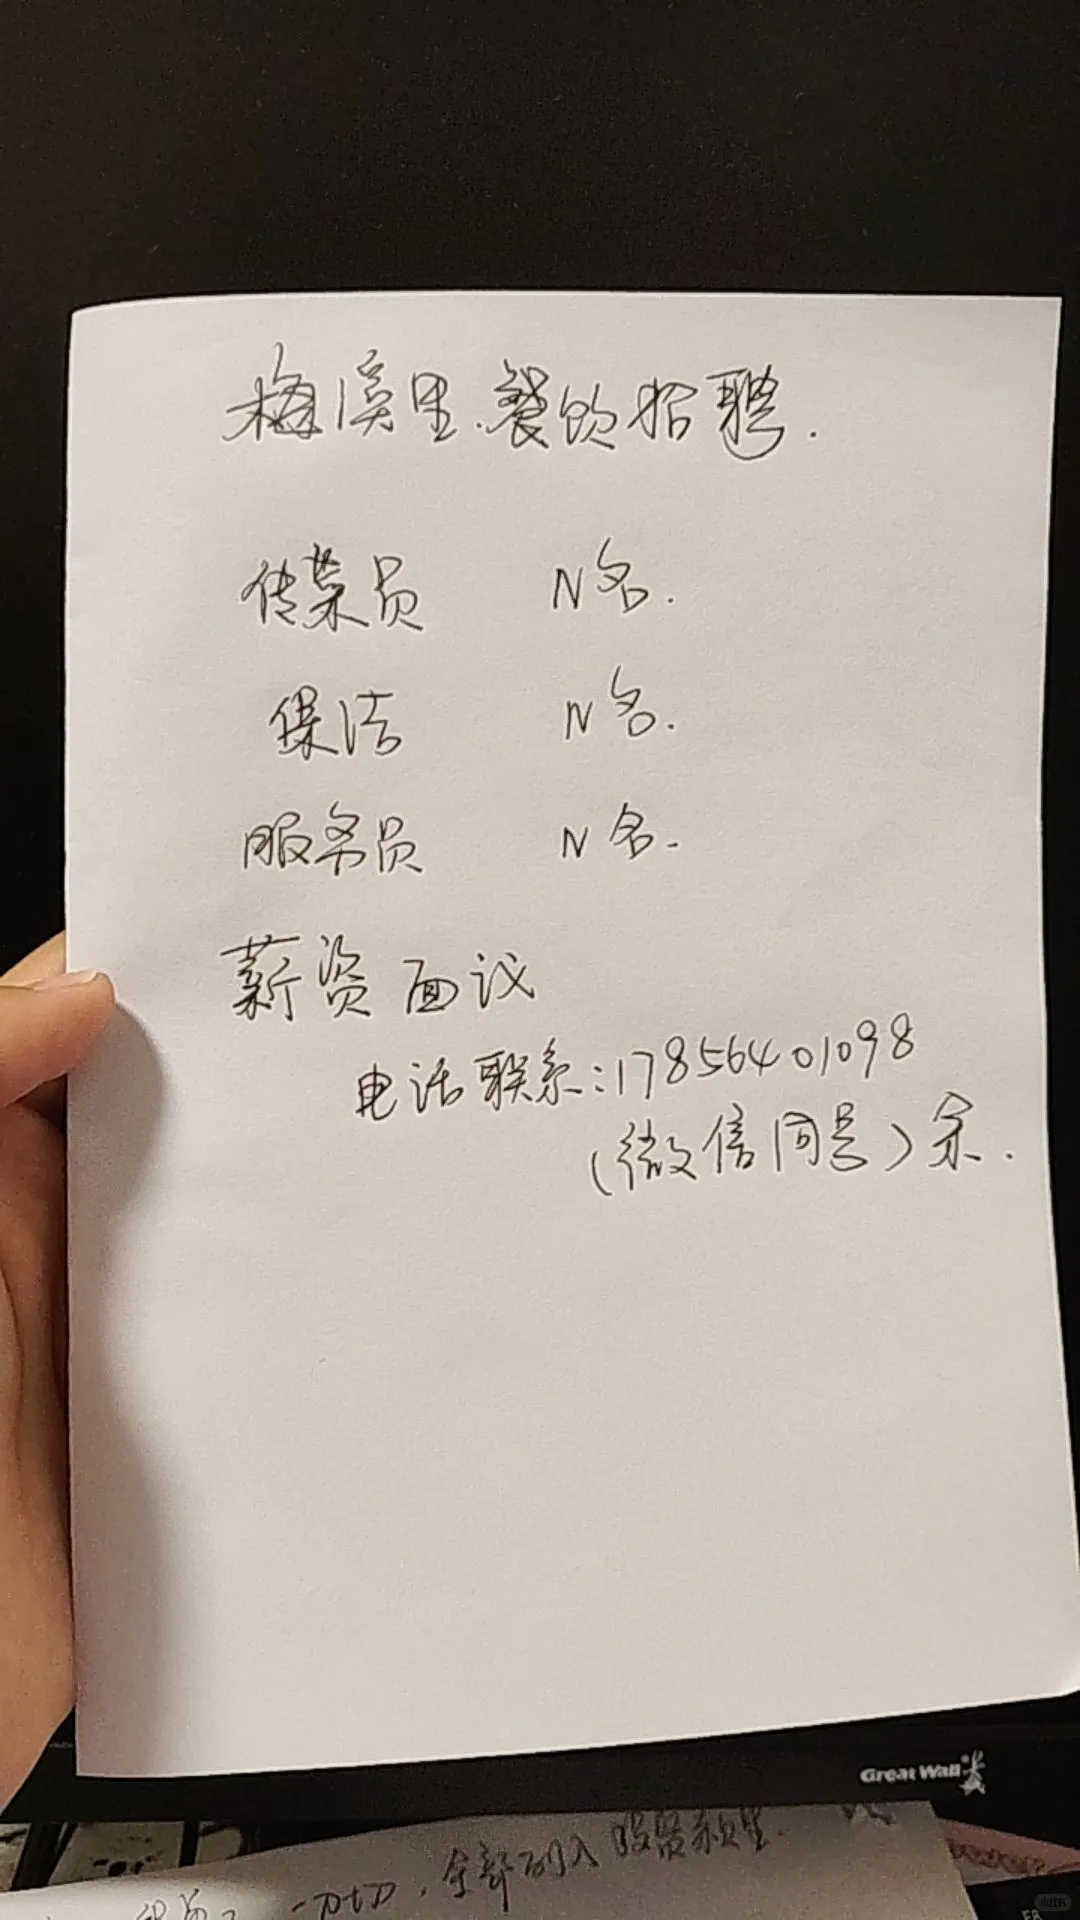 梅溪里.餐饮招聘.
传菜员 N名.
保洁 N名.
服务员 N名.
薪资面议
电话联系:17856401098
(微信同号)余.
Great Wall
一刀切,全部列入
小红书